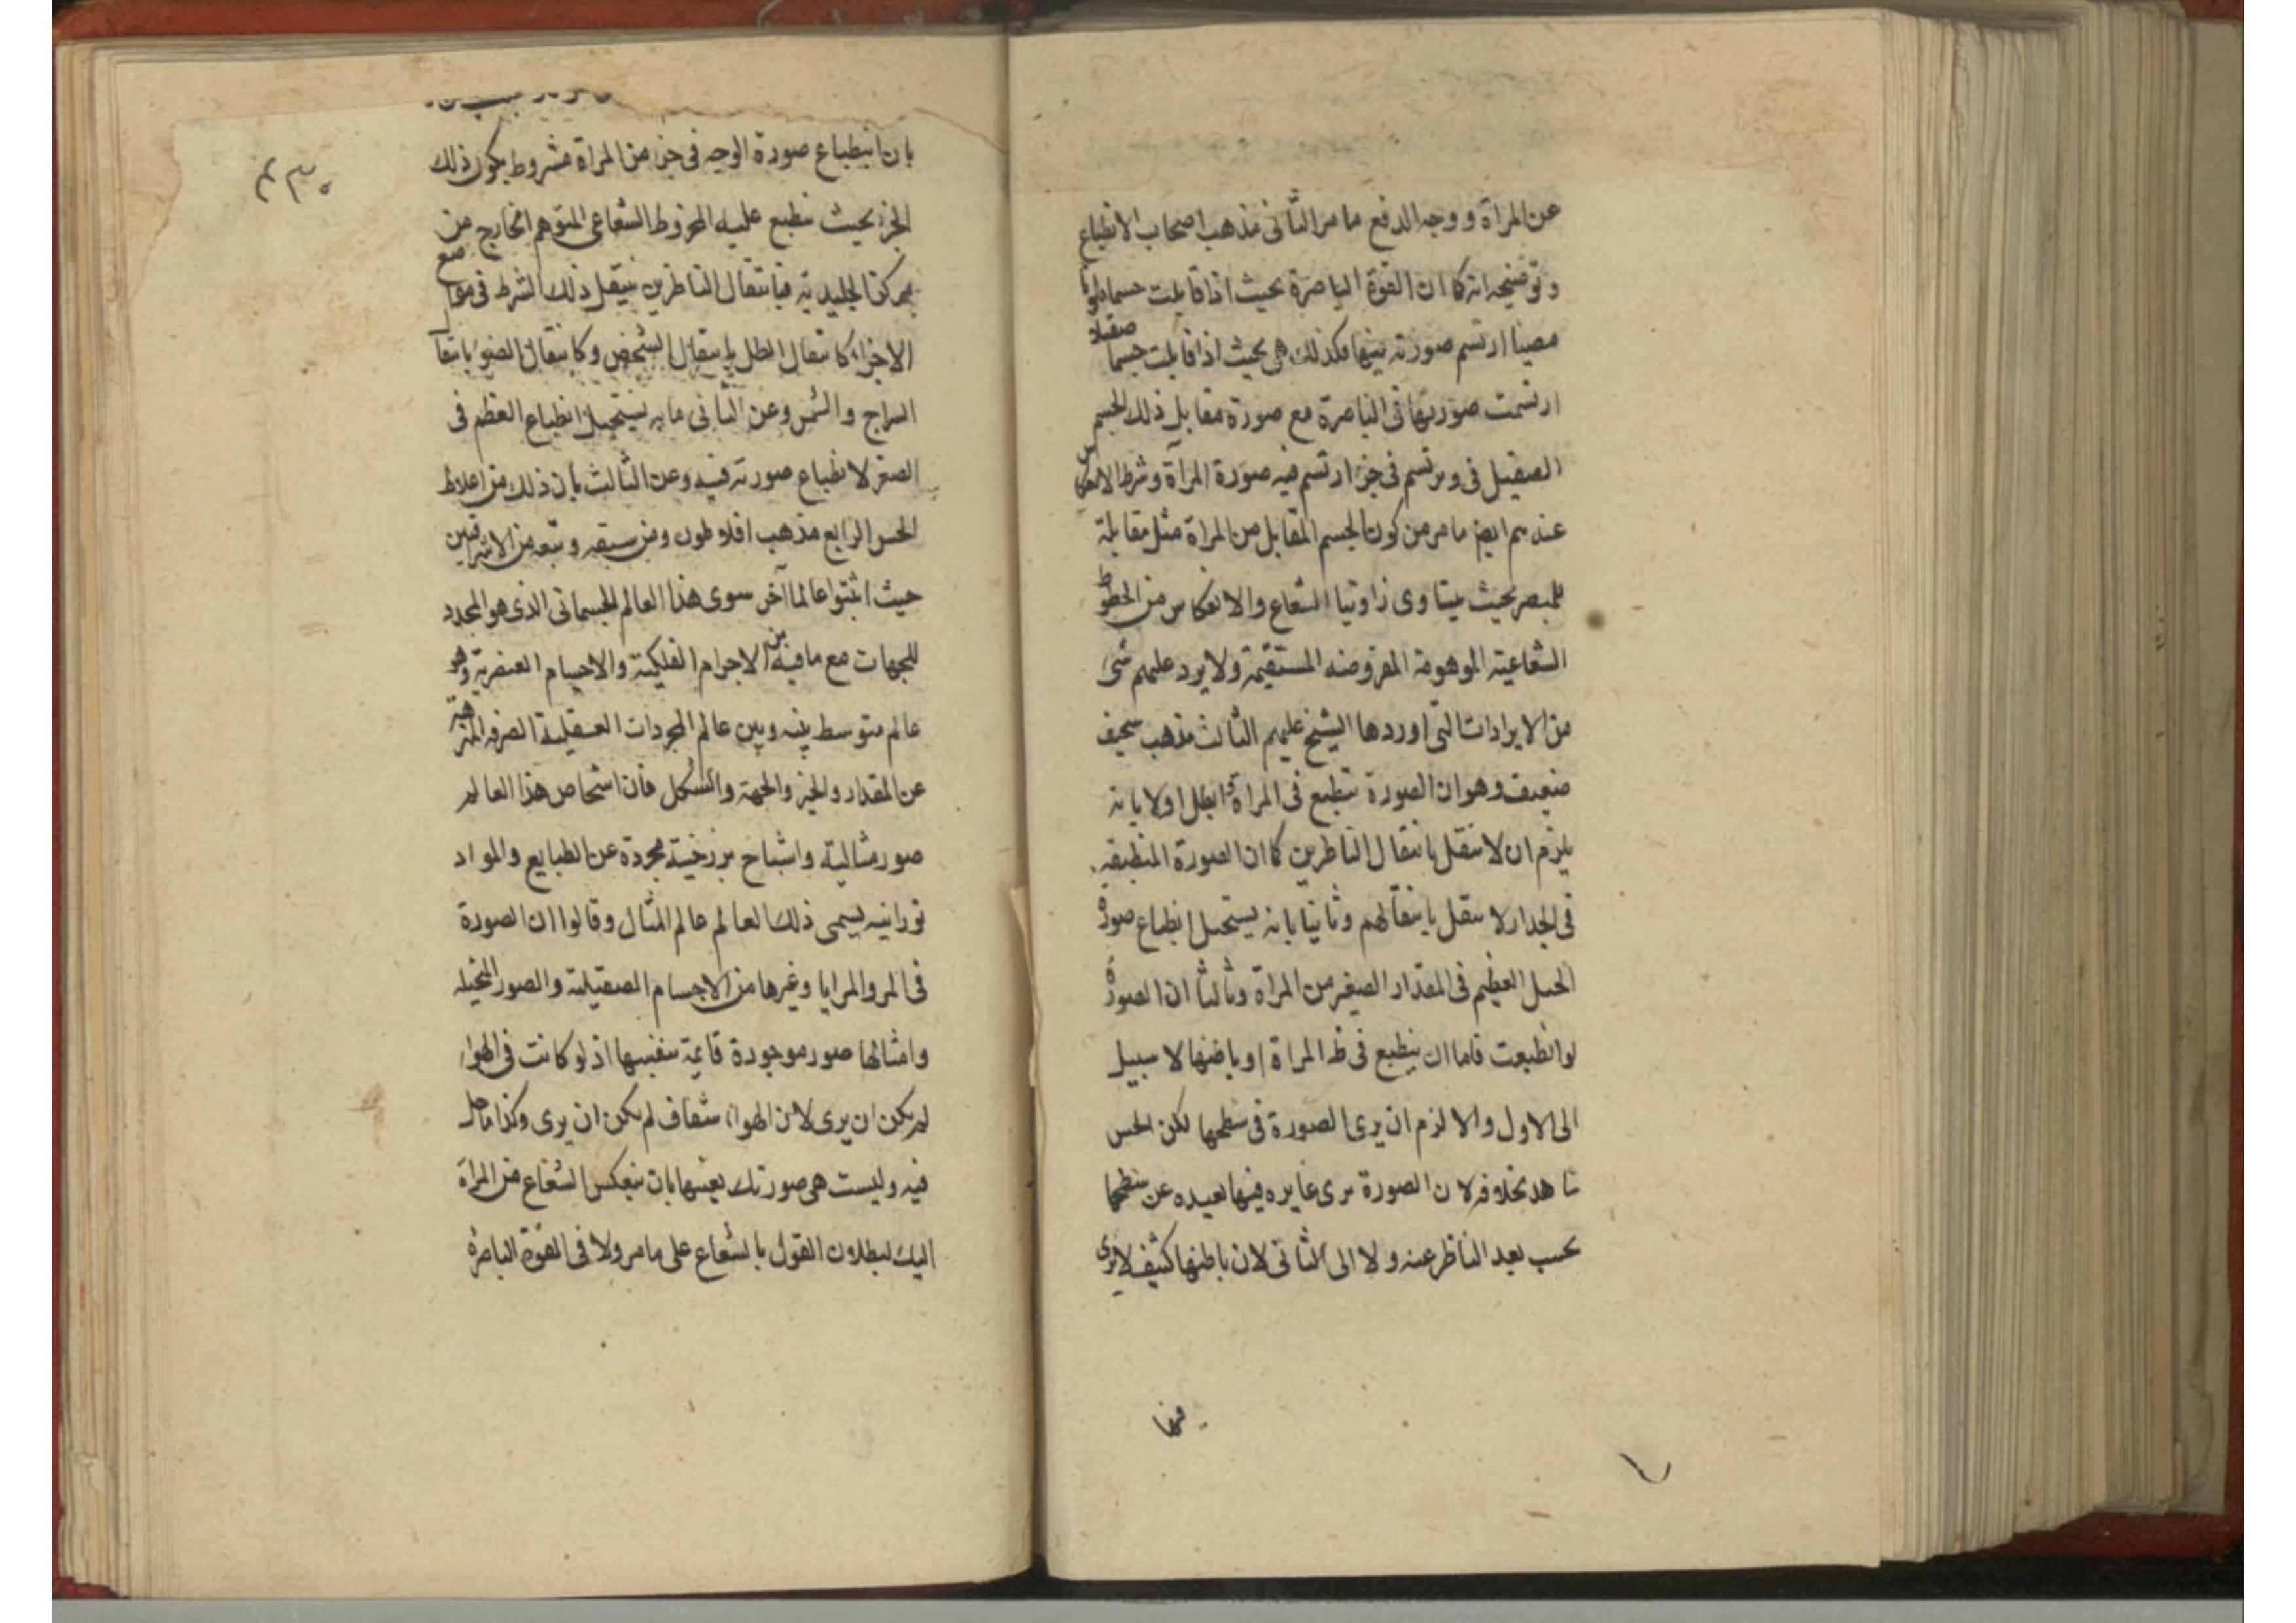 عن المرآة ووجه الدفع ما مر الثانى مذهب اصحاب الانطباع
وتوضيحه انه كما ان القوة الباصرة بحيث اذا قابلت جسما ملونا
مضيئا ارتسم صورته فيها فكذلك هى بحيث اذا قابلت جسما صقيلا
ارتسمت صورتها فى الباصرة مع صورة مقابل ذلك الجسم
الصقيل فى ويرتسم فى جزء ارتسم فيه صورة المرآة وشرط الانعكاس
عندهم ايضا ما مر من كون الجسم المقابل من المرآة مثل مقابلة
للمبصر بحيث يتساوى زاويتا الشعاع والانعكاس من الخطوط
الشعاعية الموهومة المفروضه المستقيمة ولا يرد عليهم شئ
من الايرادات التى اوردها الشيخ عليهم الثالث مذهب سخيف
ضعيف وهو ان الصورة تنطبع فى المرآة وابطل اولا بانه
يلزم ان لا تنتقل بانتقال الناظرين كما ان الصورة المنطبعه
فى الجدار لا تنتقل بانتقالهم وثانيا بانه يستحيل انطباع صورة
الجبل العظيم فى المقدار الصغير من المرآة وثالثا ان الصورة
لو انطبعت فاما ان ينطبع فى ظ المراة او باطنها لا سبيل
الى الاول والا لزم ان يرى الصورة فى سطحها لكن الحس
شاهد بخلافه لان الصورة يرى غايره فيها بعيده عن سطحها
بحسب بعد الناظر عنه ولا الى الثانى لان باطنها كثيف لا يرى
فيها
بان انطباع صورة الوجه فى جزء من المراة مشروط بكون ذلك
الجزء بحيث ينطبع عليه المخروط الشعاعى المتوهم الخارج من
مركز الجليدية فبانتقال الناظرين ينتقل ذلك الشرط فى مواضع
الاجزاء كانتقال الظل بانتقال الشخص وكانتقال الضوء بانتقال
السراج والشمس وعن الثانى مايه يستحيل انطباع العظم فى
الصغر لانطباع صورته فيه وعن الثالث بان ذلك من اغلاط
الحس الرابع مذهب افلاطون ومن سبقه وتبعه من الاشراقيين
حيث اثبتوا عالما آخر سوى هذا العالم الجسمانى الذى هو المحدد
للجهات مع ما فيه من الاجرام الفلكية والاجسام العنصرية وهو
عالم متوسط بينه وبين عالم المجردات العقلية الصرفه المنزهة
عن المقدار والحيز والجهة والشكل فان اشخاص هذا العالم
صور مثالية واشباح برزخية مجردة عن الطبايع والمواد
نورانيه يسمى ذلك العالم عالم المثال وقالوا ان الصورة
فى المر والمرايا وغيرها من الاجسام الصقيلة والصور المتخيله
وامثالها صور موجودة قايمة بنفسها اذ لو كانت فى الهواء
لم يكن ان يرى لان الهواء شفاف لم يكن ان يرى وكذا ما حل
فيه وليست هى صورتك بعينها بان ينعكس الشعاع من المرآة
اليك لبطلان القول بالشعاع على ما مر ولا فى القوة الباصرة